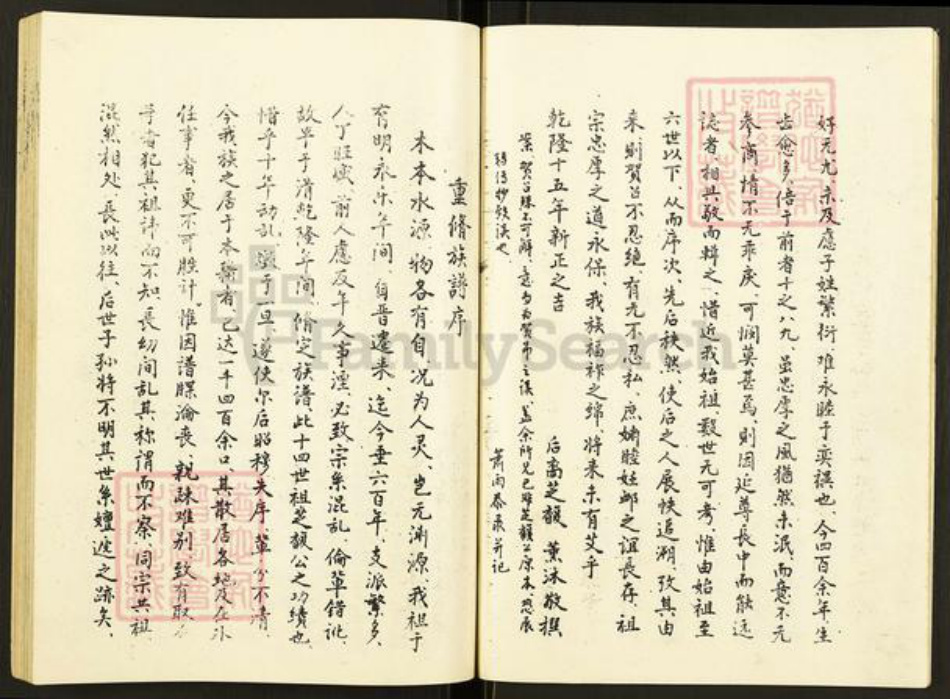 好无尤、未及应子姓繁衍、难永睦于奕禩也、今四百余年、生
齿愈多、倍于前者十之八九、虽忠厚之风犹然未泯、而意不无
参商、情不无乖戾、可悯莫甚焉、则因延尊长中而能远
谈者、相与敬而辑之、惜近我始祖、数世无可考、惟由始祖至
六世以下、从而序次、先后秩然、使后之人展帙追溯、考其由
来、则贺吕不忍绝、有无不忍私、庶婣睦姙邮之谊长存、祖
宗忠厚之道永保、我族福祚之绵、将来未有艾乎
乾隆十五年新正之吉
后裔芝馥 薰沐敬撰
案、贺吕殊不可解、意为为贺吊之误、盖余所见已难芝馥公原本、想展
转传抄致误也、
萧雨泰录并记
重修族谱序
木本水源、物各有自、况为人灵、岂无渊源、我祖于
有明永乐年间、自晋迁来、迄今垂六百年、支派繁多、
人丁旺盛、前人虑及年久事湮、必致宗系混乱、伦辈错讹、
故早于清乾隆年间、修定族谱、此十四世祖芝馥公之功绩也、
惜乎十年动乱、毁于一旦、遂使尔后昭穆失序、辈分不清、
今我族之居于本籍者、已达一千四百余口、其散居各地及在外
任事者、更不可胜计、惟因谱牒沦丧、親疎难别、致有取
字者犯其祖讳而不知、长幼间乱其称谓而不察、同宗共祖
混然相处、长此以往、后世子孙将不明其世系嬗递之跡矣、
FamilySearch